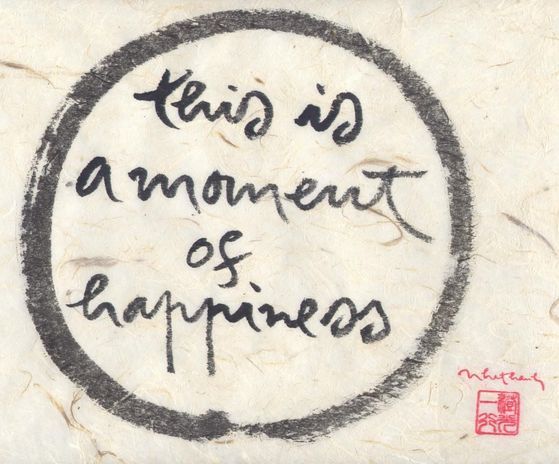 this is
a moment
of
happiness
Nhat Hanh